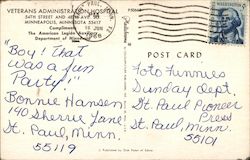 VETERANS ADMINISTRATION HOSPITAL
54TH STREET AND 48TH AVE. SO.
MINNEAPOLIS, MINNESOTA 55417
Compliments
The American Legion Auxiliary
Department of Minnesota
WASHINGTON
POST CARD
Boy! That
was a fun
Party!"
Bonnie Hansen
190 Sherrie Lane
St. Paul, Minn.
55119
Foto Funnies
Sunday Dept.
St. Paul Pioneer
Press
St. Paul, Minn.
55101